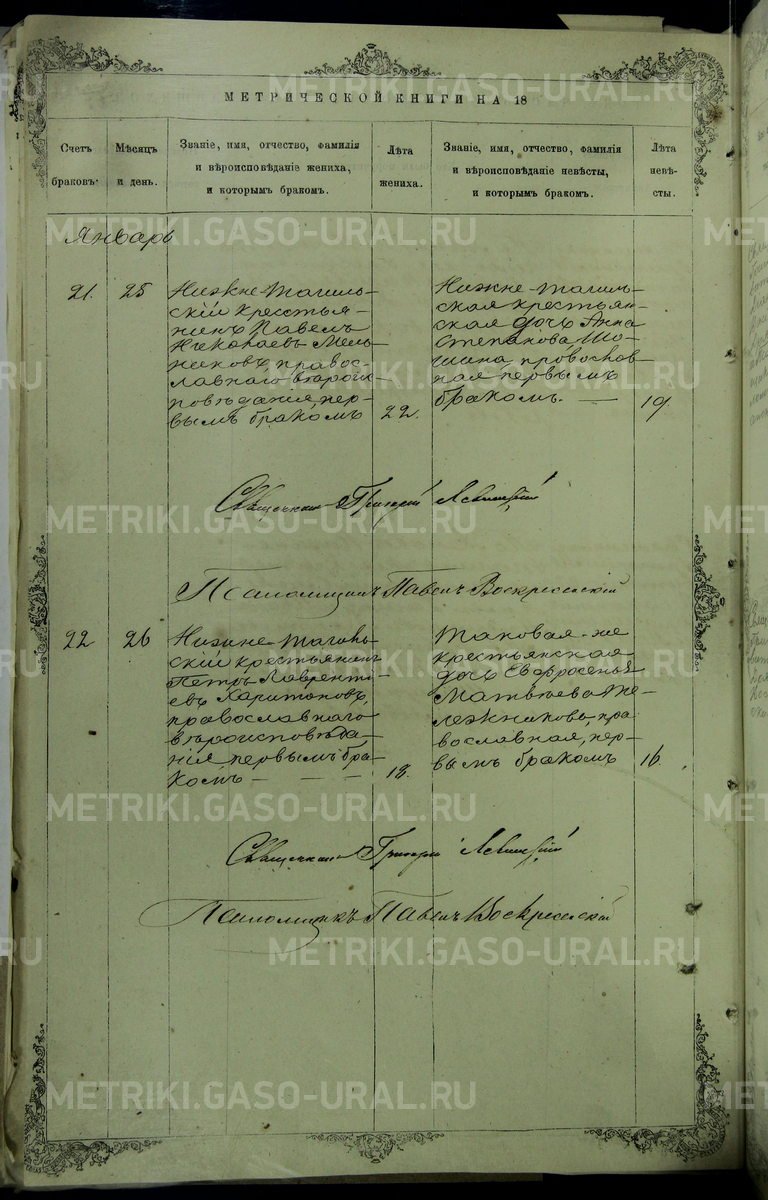 МЕТРИЧЕСКОЙ КНИГИ НА 18
Счетъ браковъ.
Мѣсяцъ и день.
Званіе, имя, отчество, фамилія и вѣроисповѣданіе жениха, и которымъ бракомъ.
Лѣта жениха.
Званіе, имя, отчество, фамилія и вѣроисповѣданіе невѣсты, и которымъ бракомъ.
Лѣта невѣ-сты.
Январь
21. 25
Нижне-Тагиль-
скій кресстья-
нинъ Павелъ
Николаевъ Мель-
никовъ, правос-
лавнаго вѣроис-
повѣданія, пер-
вымъ бракомъ
22.
Нижне-Тагиль-
ская крестьян-
ская дочь Анна
Степанова Шо-
шина, провослов-
ная первымъ
бракомъ. —
19.
Священникъ Григорій Левицкій
Псаломщикъ Павелъ Воскресенскій
22 26
Нижне-Тагиль-
скій крестьянинъ
Петръ Лаврентi-
евъ Харитоновъ,
православнаго
вѣроисповѣда-
нія, первымъ бра-
комъ — — —
18.
Таковая-же
крестьянская
дочь Евфросенья
Матвѣева Же-
лезникова, пра-
вославная, пер-
вымъ бракомъ
16.
Священникъ Григорій Левицкій
Псаломщикъ Павелъ Воскресенскій
METRIKI.GASO-URAL.RU